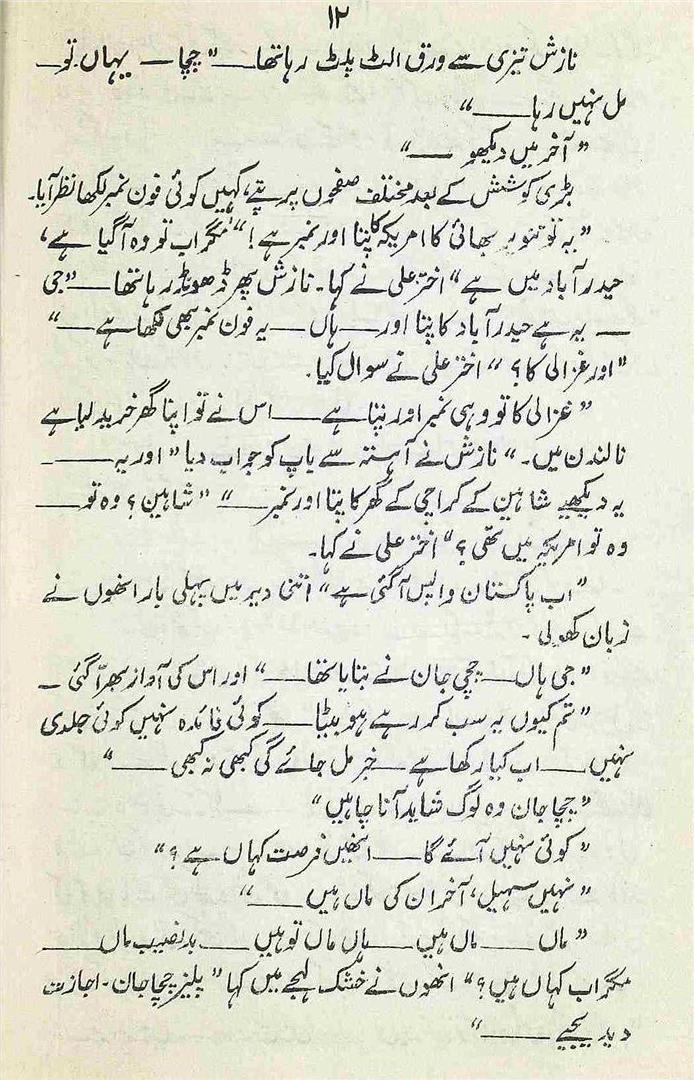 ۱۲
نازش تیزی سے ورق الٹ پلٹ رہا تھا ــــ ”چچا ــــ یہاں تو ــــ
مل نہیں رہا ــــ “
”آخر میں دیکھو ــــ “
بڑی کوشش کے بعد مختلف صفحوں پر پتے، کہیں کوئی فون نمبر لکھا نظر آیا۔
”یہ تو تنویر بھائی کا امریکہ کا پتا اور نمبر ہے!“ ”مگر اب تو وہ آ گیا ہے،
حیدرآباد میں ہے“ اختر علی نے کہا۔ نازش پھر ڈھونڈ رہا تھا ــــ ”جی
ــــ یہ ہے حیدرآباد کا پتا اور ــــ ہاں ــــ یہ فون نمبر بھی لکھا ہے ــــ “
”اور غزالی کا؟“ اختر علی نے سوال کیا۔
”غزالی کا تو وہی نمبر اور پتا ہے ــــ اس نے تو اپنا گھر خرید لیا ہے
نا لندن میں۔“ نازش نے آہستہ سے باپ کو جواب دیا ”اور یہ ــــ
یہ دیکھیے شاہین کے کراچی کے گھر کا پتا اور نمبر ــــ “ ”شاہین؟ وہ تو ــــ
وہ تو امریکہ میں تھی؟“ اختر علی نے کہا۔
”اب پاکستان واپس آ گئی ہے“ اتنی دیر میں پہلی بار انھوں نے
زبان کھولی۔
”جی ہاں ــــ چچی جان نے بتایا تھا ــــ “ اور اس کی آواز بھرّا گئی ــ
”تم کیوں یہ سب کر رہے ہو بیٹا ــــ کوئی فائدہ نہیں کوئی جلدی
نہیں ــــ اب کیا رکھا ہے ــــ خبر مل جائے گی کبھی نہ کبھی ــــ “
”چچا جان وہ لوگ شاید آنا چاہیں“
”کوئی نہیں آئے گا ــــ انھیں فرصت کہاں ہے؟“
”نہیں سہیل، آخر ان کی ماں ہیں ــــ “
”ماں ــــ ماں ہیں ــــ ہاں ماں تو ہیں ــــ بدنصیب ماں ــــ
مگر اب کہاں ہیں؟“ انھوں نے خشک لہجے میں کہا ”پلیز چچا جان۔ اجازت
دیدیجیے ــــ “